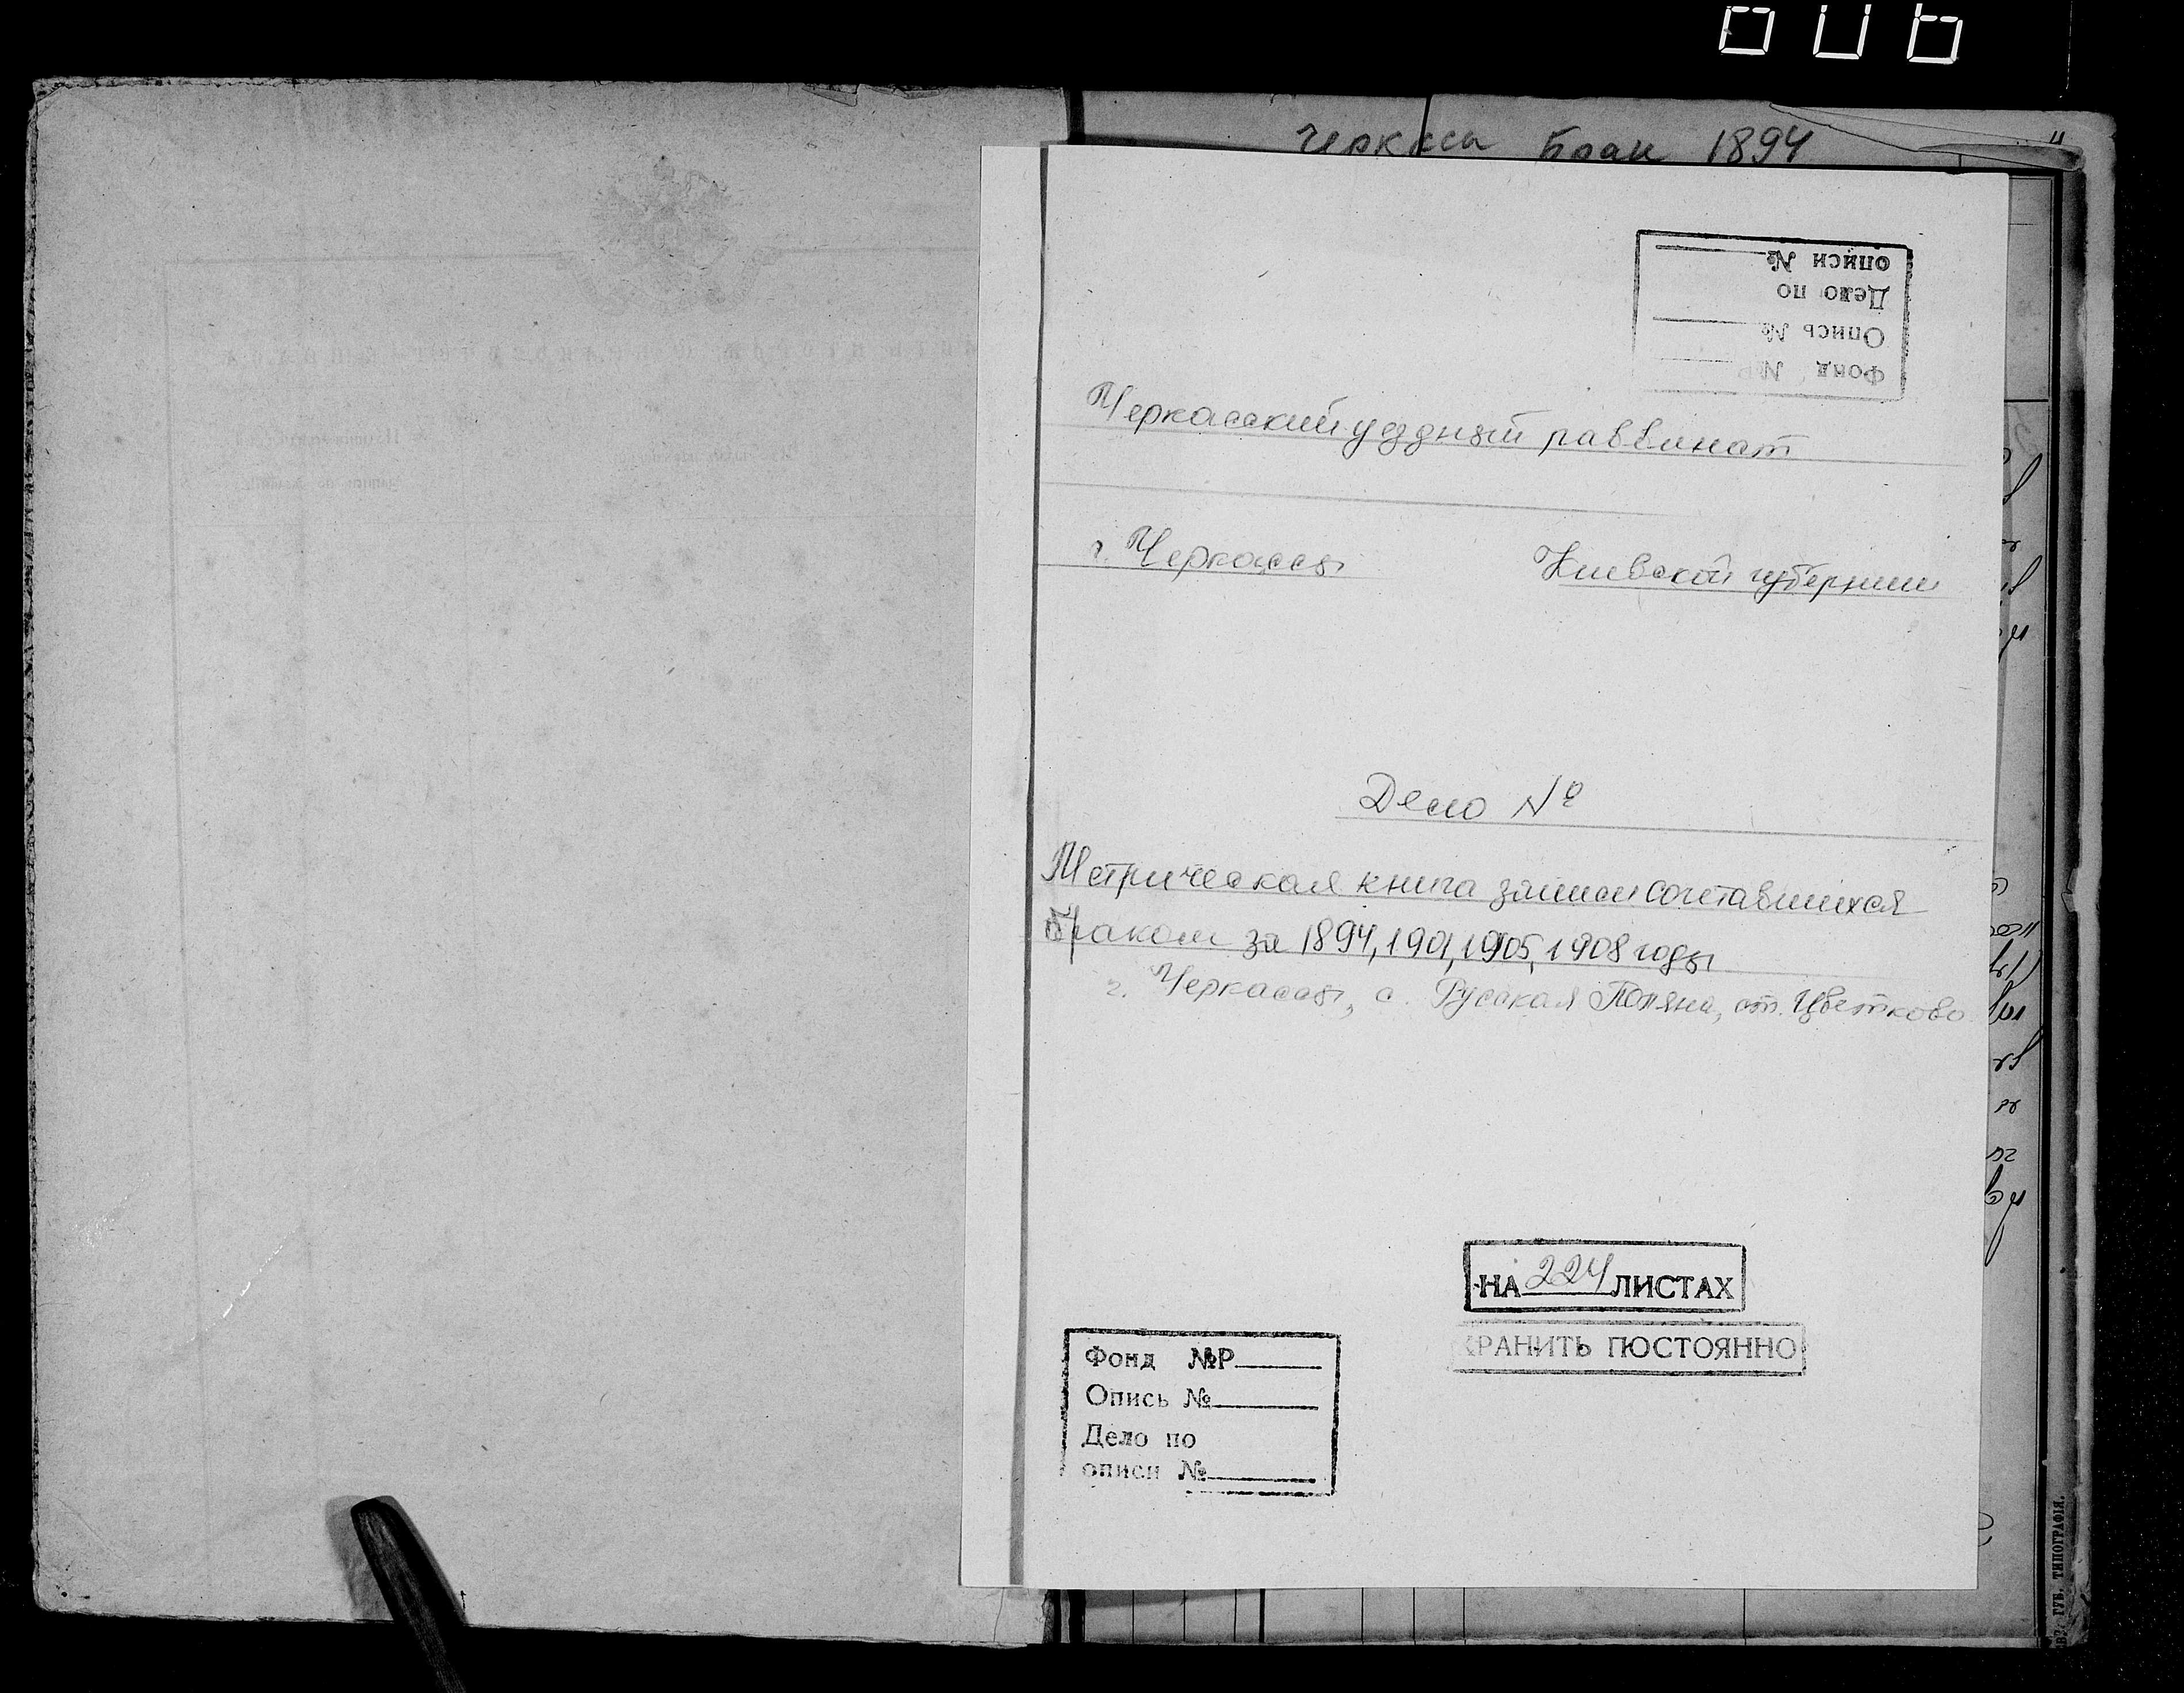 Черкассы Брак 1894
описи №
Дело по
Опись №
Фонд №Р
Черкасский уездный раввинат
г. Черкассы Киевской губернии
Дело №
Метрическая книга записи сочетавшихся
браком за 1894, 1901, 1905, 1908 годы
г. Черкассы, с. Русская Поляна, ст. Цветково
НА 224 ЛИСТАХ
ХРАНИТЬ ПОСТОЯННО
Фонд №Р
Опись №
Дело по
описи №
ГУБ. ТИПОГРАФІЯ.